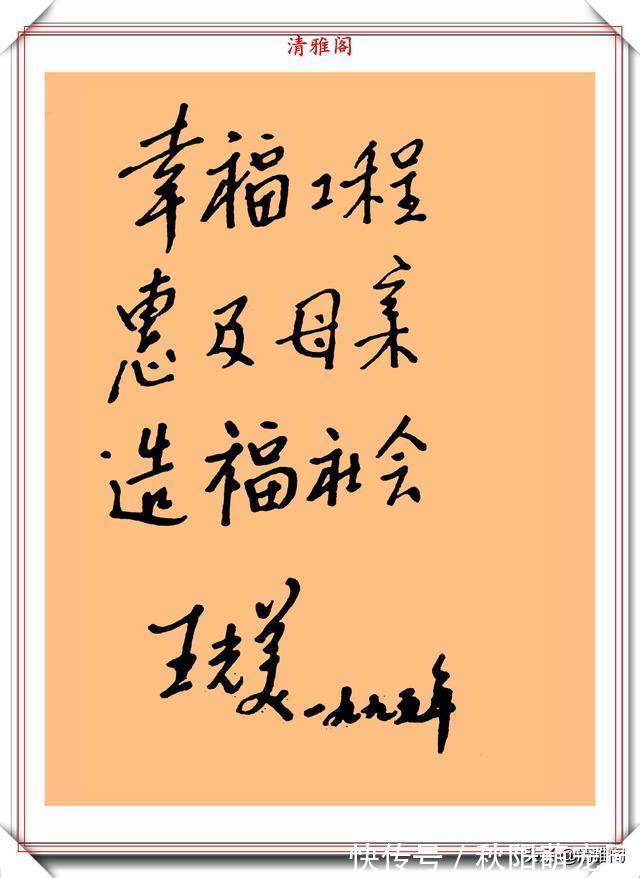 清雅阁
幸福工程
惠及母亲
造福社会
王光美 一九九五年
快传号 / 秋阳萌宠